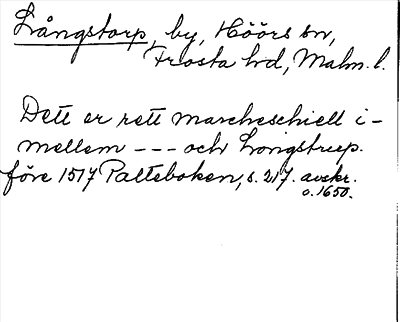 Långstorp, by, Höörs sn,
Frosta hd, Malm. l.
Dett er rett marcheschiell i-
mellem --- och Longstrup.
före 1517 Palteboken, s. 217. avskr.
o. 1650.